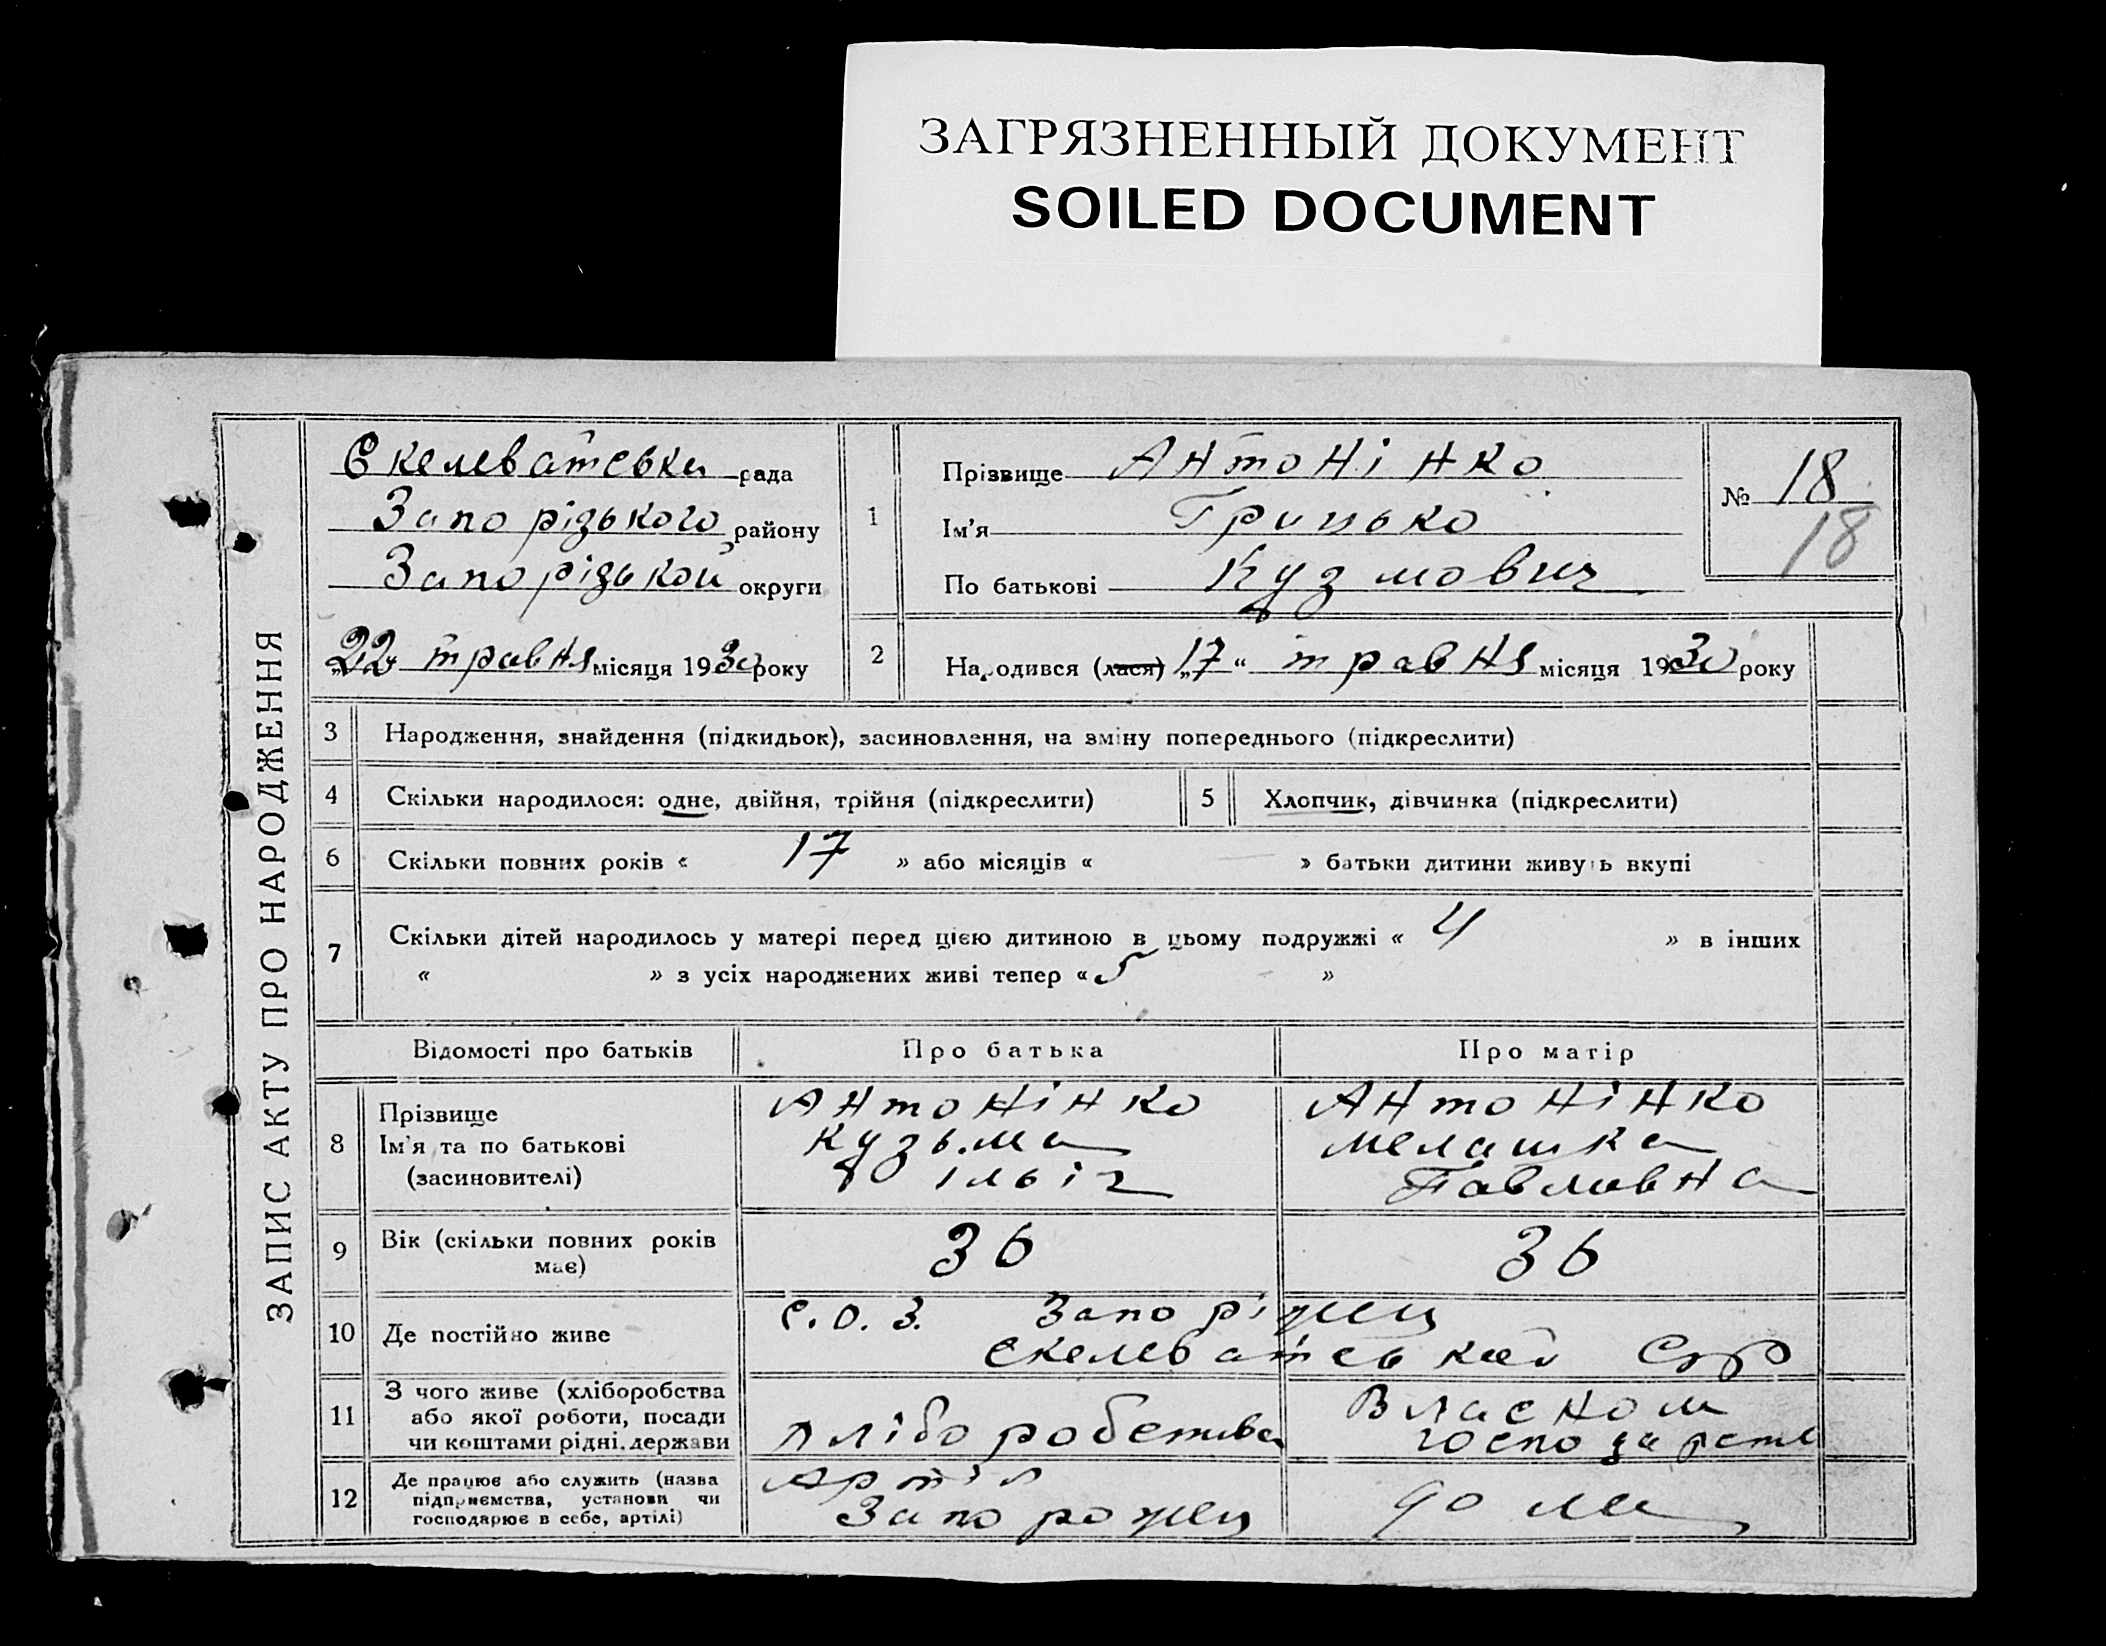 ЗАГРЯЗНЕННЫЙ ДОКУМЕНТ
SOILED DOCUMENT
ЗАПИС АКТУ ПРО НАРОДЖЕННЯ
Скелеватська рада
Запорізького району
Запорізькой округи
„22" травня місяця 1930 року
1
Прізвище Антонінко
Ім'я Грицько
По батькові Кузмович
№ 18
18
2 Народився (лася) „17" травня місяця 1930 року
3 Народження, знайдення (підкидьок), засиновлення, на зміну попереднього (підкреслити)
4 Скільки народилося: одне, двійня, трійня (підкреслити) 5 Хлопчик, дівчинка (підкреслити)
6 Скільки повних років « 17 » або місяців « » батьки дитини живуть вкупі
7 Скільки дітей народилось у матері перед цією дитиною в цьому подружжі « 4 » в інших
« » з усіх народжених живі тепер « 5 »
Відомості про батьків Про батька Про матір
8 Прізвище Антонінко Антонінко
Ім'я та по батькові Кузьма Мелашка
(засиновителі) Ільіч Павловна
9 Вік (скільки повних років має) 36 36
10 Де постійно живе С.О.З. Запоріжец
Скелеватськой С/Р
11 З чого живе (хліборобства Власном
або якої роботи, посади хліборобства господарств
чи коштами рідні, держави
12 Де працює або служить (назва Артіл
підприємства, установи чи Запорожец дома
господарює в себе, артілі)